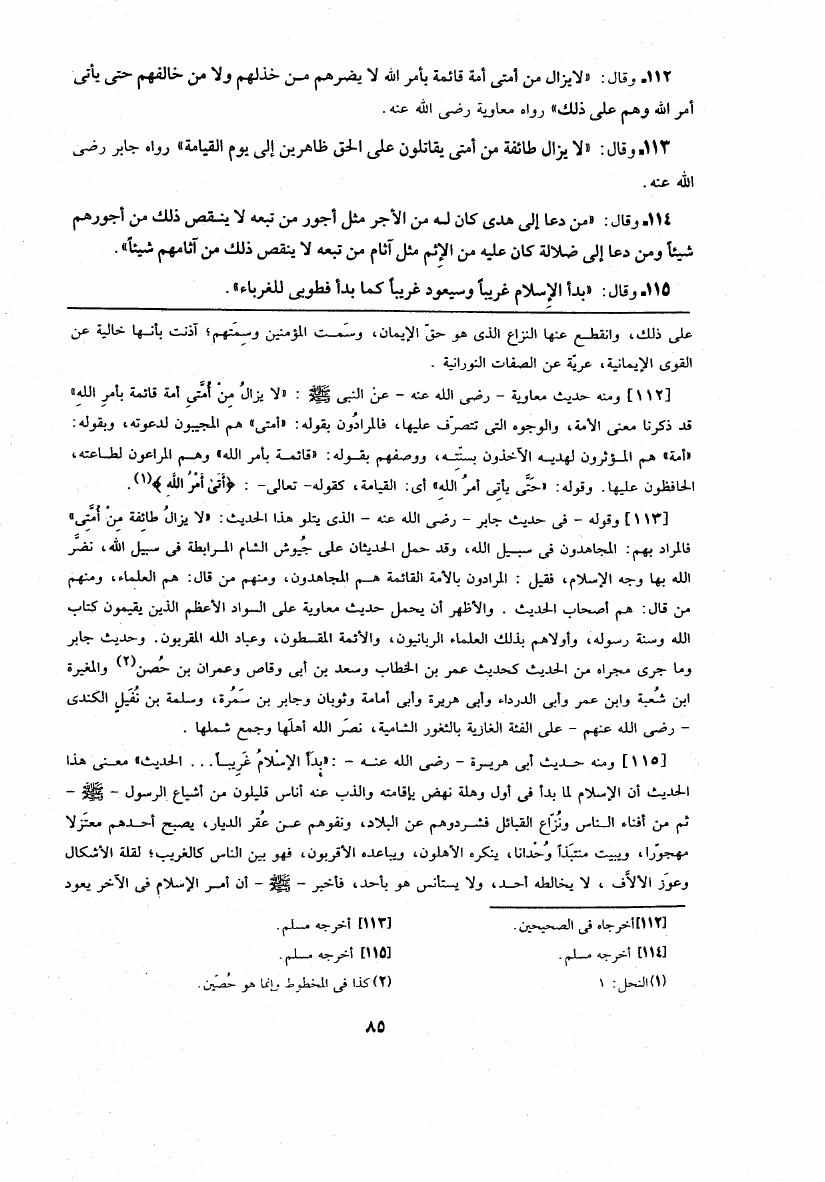 ١١٢ـ وقال: «لايزال من أمتى أمة قائمة بأمر الله لا يضرهم مـن خذلهم ولا من خالفهم حتى يأتى
أمر الله وهم على ذلك» رواه معاوية رضى الله عنه.
١١٣ـ وقال: «لا يزال طائفة من أمتى يقاتلون على الحق ظاهرين إلى يوم القيامة» رواه جابر رضى
الله عنه.
١١٤ـ وقال: «من دعا إلى هدى كان لـه من الأجر مثل أجور من تبعه لا ينـقص ذلك من أجورهم
شيئاً ومن دعا إلى ضلالة كان عليه من الإثم مثل آثام من تبعه لا ينقص ذلك من آثامهم شيئاً».
١١٥ـ وقال: «بدأ الإسلام غريباً وسيعود غريباً كما بدأ فطوبى للغرباء».
على ذلك، وانقطـع عنها النزاع الذى هو حقّ الإيمان، وسَمـت المؤمنين وسِمَتهم؛ آذنت بأنـها خالية عن
القوى الإيمانية، عريّة عن الصفات النورانية .
[١١٢] ومنه حديث معاوية - رضى الله عنه - عن النبى ﷺ : «لا يزالُ مِنْ أُمَّتى أمة قائمة بأمرِ اللهِ»
قد ذكرنا معنى الأمة، والوجوه التى تتصرّف عليها، فالمرادُون بقوله: «أمتى» هم المجيبون لدعوته، وبقوله:
«أمة» هم المـؤثرون لهديـه الآخذون بسنَّتِـه، ووصفهم بقـوله: «قائمـة بأمر الله» وهـم المراعون لطـاعته،
الحافظون عليها. وقوله: «حَتَّى يأتى أمرُ اللهِ» أى: القيامة، كقوله- تعالى- : ﴿أَتَىٰ أَمْرُ اللَّهِ﴾(١).
[١١٣] وقوله - فى حديث جابر - رضى الله عنه - الذى يتلو هذا الحديث: «لا يزالُ طائفة مِنْ أُمَّتِى»
فالمراد بهم: المجاهدون فى سبـيل الله، وقد حمل الحديثان على جُيوش الشام المـرابطة فى سبيل الله، نضَّر
الله بها وجه الإسلام، فقيل : المرادون بالأمة القائمة هـم المجاهدون، ومنهم من قال: هم العلماء، ومنهم
من قال: هم أصحاب الحديث . والأظهر أن يحمل حديث معاوية على السواد الأعظم الذين يقيمون كتاب
الله وسنة رسوله، وأولاهم بذلك العلماء الربانيون، والأئمة المقسطون، وعباد الله المقربون. وحديث جابر
وما جرى مجراه من الحديث كحديث عمر بن الخطاب وسعد بن أبى وقاص وعمران بن حُصن(٢) والمغيرة
ابن شُعبة وابن عمر وأبى الدرداء وأبى هريرة وأبى أمامة وثوبان وجابر بن سَمُرة، وسلمة بن نُفَيلٍ الكندى
- رضى الله عنهم - على الفئة الغازية بالثغور الشامية، نصرَ الله أهلَها وجمع شملها .
[١١٥] ومنه حـديث أبى هريـرة - رضى الله عنـه - :«بدَأَ الإسْلامُ غَرِيبـاً... الحديث» معـنى هذا
الحديث أن الإسلام لما بدأ فى أول وهلة نهض بإقامته والذب عنه أناس قليلون من أشياع الرسول - ﷺ -
ثم من أفناء الـناس ونُزَّاع القبائل فشـردوهم عن البلاد، ونفوهم عـن عُقر الديار، يصبح أحـدهم معتزلا
مهجورًا، ويبيت منتبَذاً وُحْدانا، ينكره الأهلون، ويباعده الأقربون، فهو بين الناس كالغريب؛ لقلة الأشكال
وعوَز الألاَّف ، لا يخالطه أحـد، ولا يستأنس هو بأحد، فأخبر - ﷺ - أن أمـر الإسلام فى الآخر يعود
[١١٢] أخرجاه فى الصحيحين.
[١١٣] أخرجه مسلم.
[١١٤] أخرجه مسلم.
[١١٥] أخرجه مسلم.
(١) النحل: ١
(٢) كذا فى المخطوط وإنما هو حُصَين.
٨٥